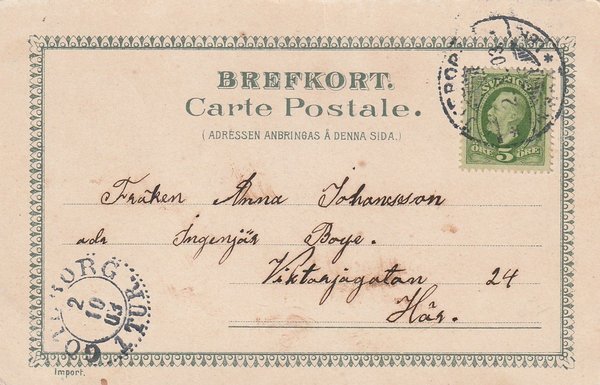 BREFKORT.
Carte Postale.
(ADRESSEN ANBRINGAS Å DENNA SIDA.)
SVERIGE
ÖRE 5 ÖRE
Fröken Anna Johansson
adr Ingenjör Boye.
Viktoriagatan 24
Här.
GÖTEBORG 1 TUR
2
10
03
Import.